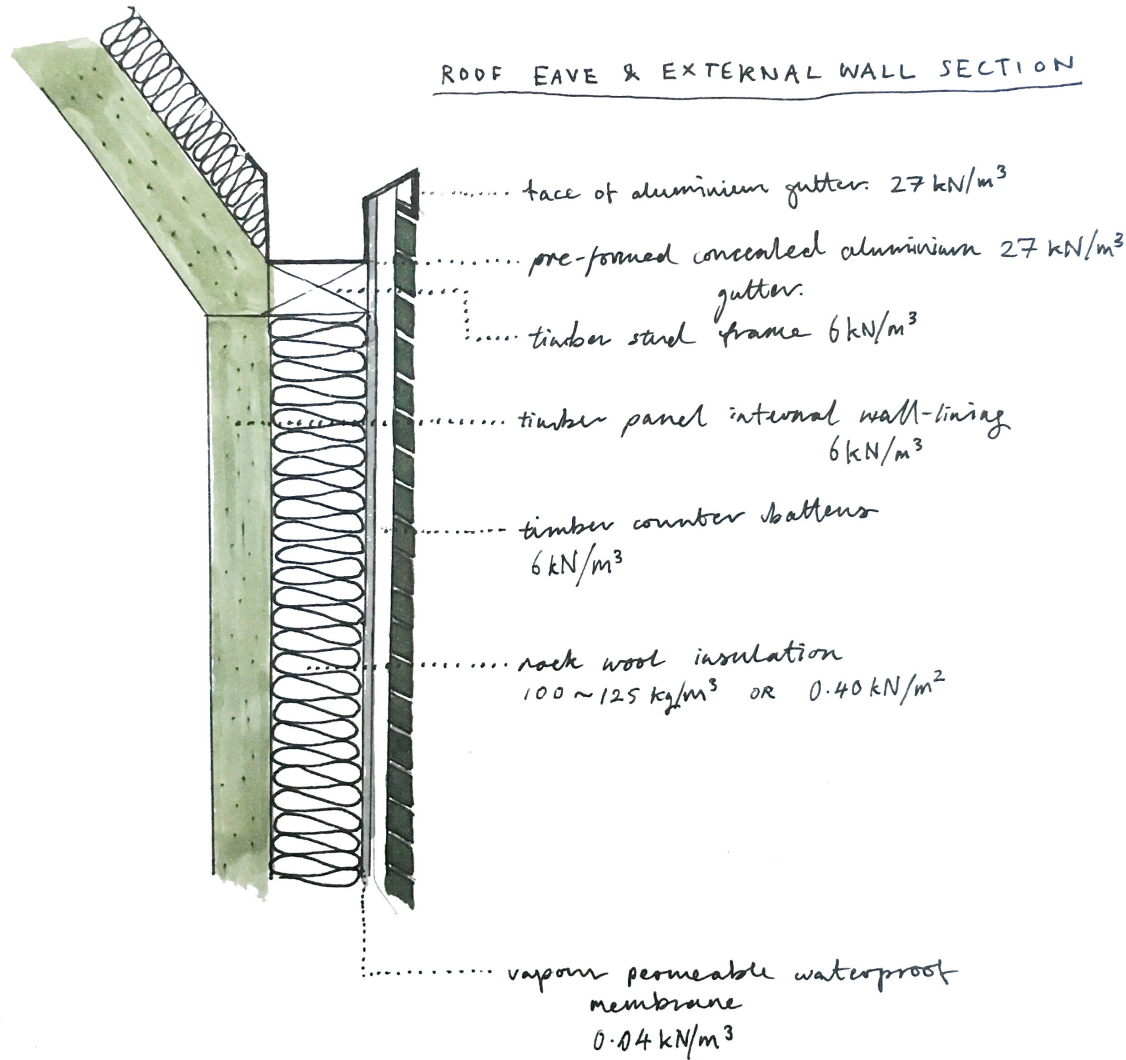 ROOF EAVE & EXTERNAL WALL SECTION
face of aluminium gutter. 27 kN/m³
pre-formed concealed aluminium 27 kN/m³
gutter.
timber stud frame 6 kN/m³
timber panel internal wall-lining
6 kN/m³
timber counter battens
6 kN/m³
rock wool insulation
100 ~ 125 kg/m³ OR 0.40 kN/m²
vapour permeable waterproof
membrane
0.04 kN/m³